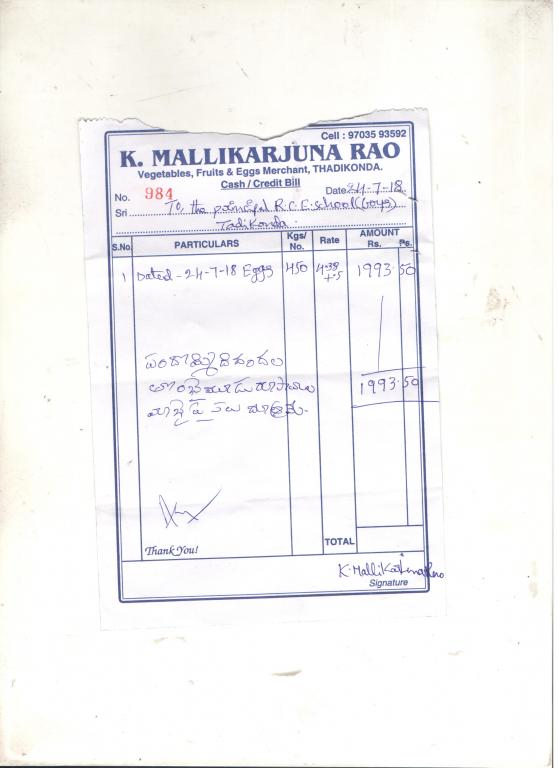 Cell : 97035 93592
K. MALLIKARJUNA RAO
Vegetables, Fruits & Eggs Merchant, THADIKONDA.
Cash / Credit Bill
No. 984 Date 24-7-18
Sri To the principal R.C.E. School (Boys)
Tadikonda.
S.No. PARTICULARS Kgs/ No. Rate AMOUNT Rs. Ps.
1 Dated - 24-7-18 Eggs 450 4-38 +.5 1993.50
1993.50
రూపాయలు
పైసలు మాత్రమే.
TOTAL
Thank You!
K. Mallikarjuna Rao
Signature